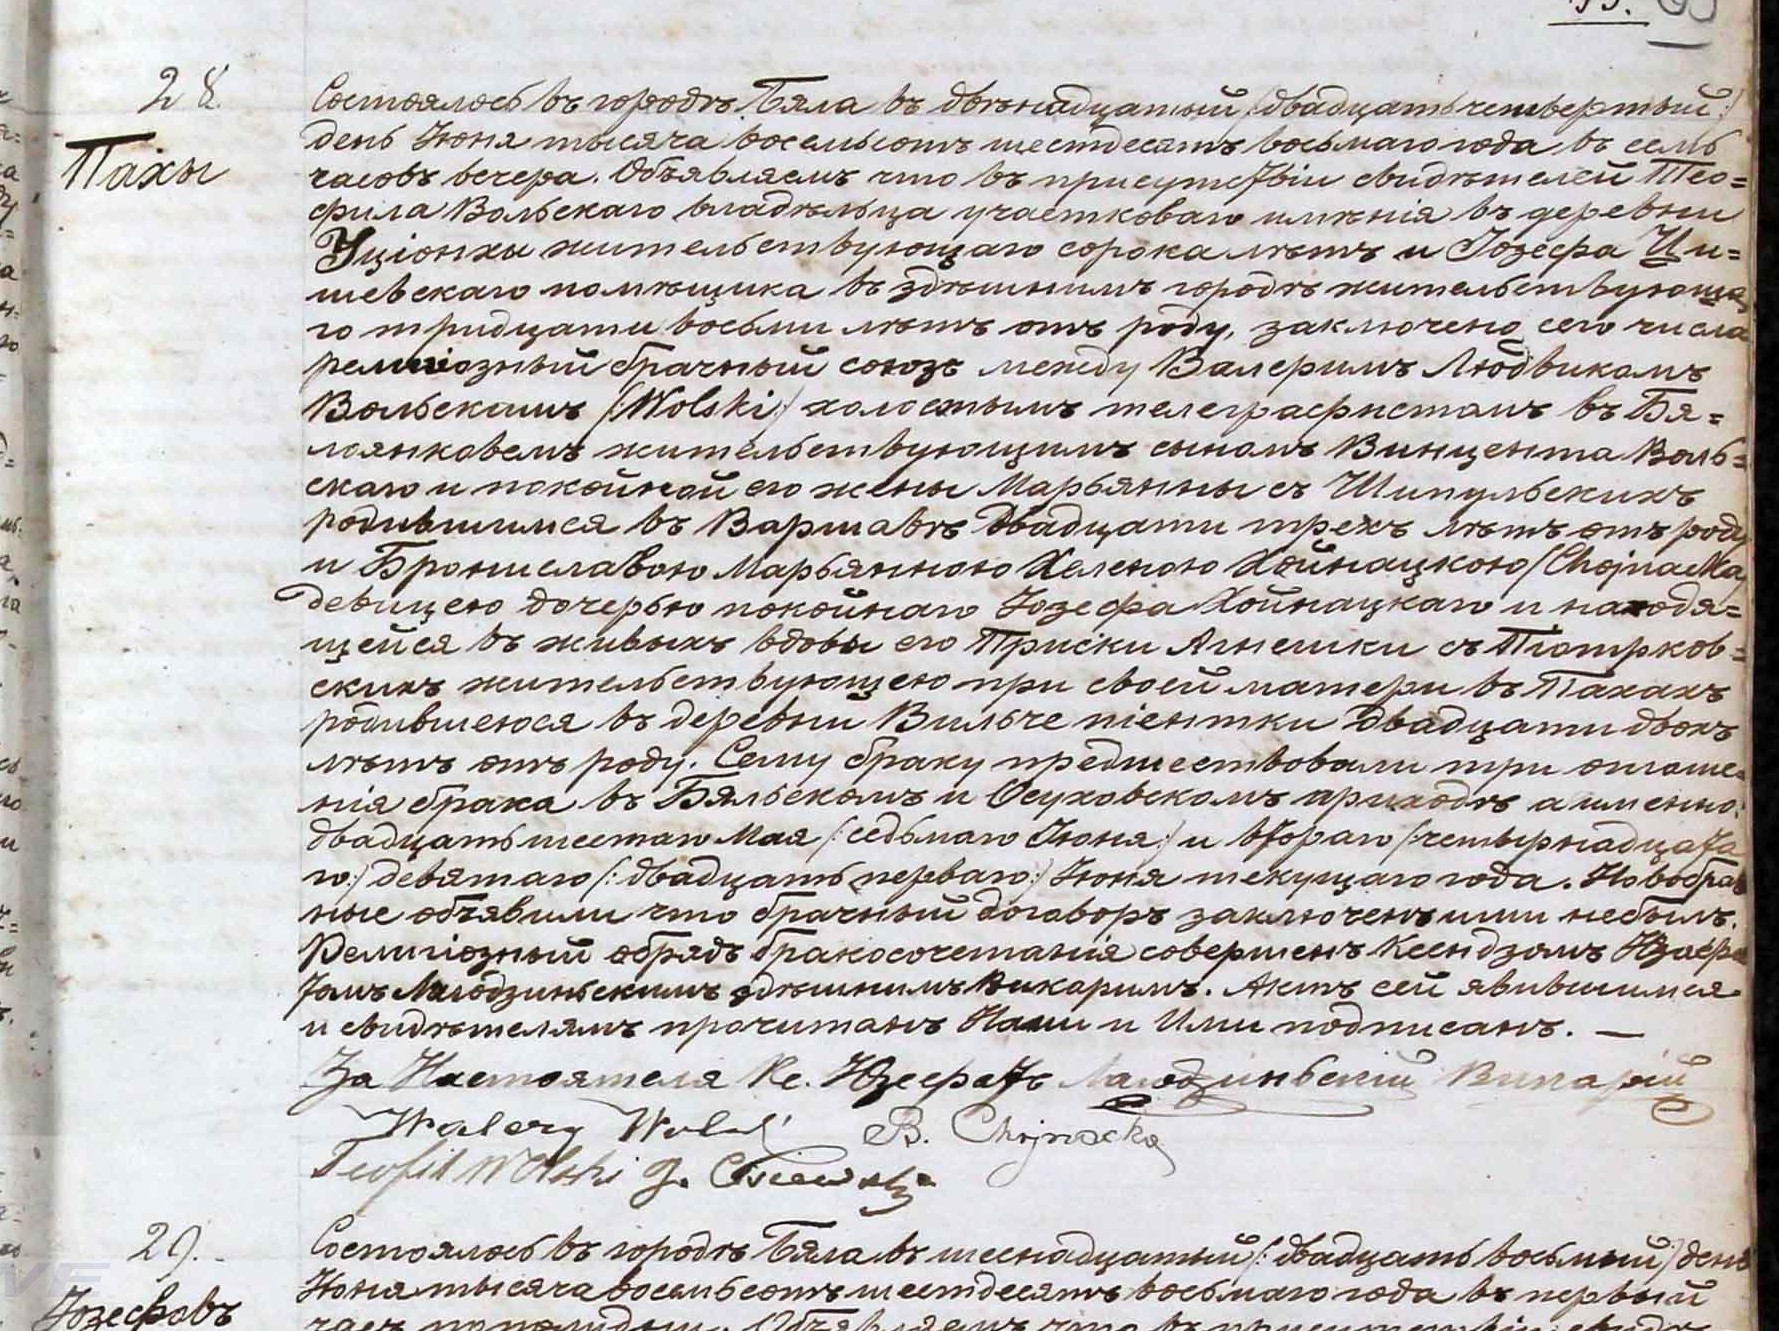 28.
Пахы
Состоялось въ городѣ Бяла въ двѣнадцатый /двадцать четвертый:/
день Юня тысяча восемьсотъ шестдесятъ восьмаго года въ семь
часовъ вечера. Объявляемъ что въ присутствіи свидѣтелей Тео=
фила Вольскаго владѣльца участковаго имѣнія въ деревни
Уціонхи жительствующаго сорока лѣтъ и Іозефа Ци=
шевскаго помѣщика въ здѣшнимъ городѣ жительствующа
го тридцати восьми лѣтъ отъ роду, заключено сего числа
религіозный брачный союзъ между Валеримъ Людвикомъ
Вольскимъ /Wolski:/ холостымъ телеграфистомъ въ Бя=
лоянковемъ жительствующимъ сыномъ Винцента Воль=
скаго и покойной его жены Марьянны съ Шипульскихъ
родившимся въ Варшавѣ двадцати трехъ лѣтъ отъ роду
и Брониславою Марьянною Хеленою Хойнацкою /Chojnacka
девицею дочерью покойнаго Іозефа Хойнацкаго и находя=
щейся въ живыхъ вдовы его Приски Агнешки съ Піотрков=
скихъ жительствующею при своей матери въ Пахахъ
родившеюся въ деревни Вильче піентки двадцати двохъ
лѣтъ отъ роду. Сему браку предшествовали три оглаше=
нія брака въ Бяльскомъ и Осуховскомъ приходѣ а именно:
двадцать шестаго Мая /:седьмаго Юня:/ и втораго /:четырнадцата
го:/ девятаго /:двадцать перваго:/ Юня текущаго года. Новобрач
ные объявили что брачный договоръ заключенъ ими небылъ.
Религіозный обрядъ бракосочетанія совершенъ Ксендзомъ Юзефа
томъ Млодзиньскимъ здѣшнимъ Викаримъ. Актъ сей явившимся
и свидѣтелямъ прочитанъ Нами и Ими подписанъ. —
За Настоятеля Кс. Юзефатъ Викарій
Walery Wolski B. Chojnacka
Teofil Wolski J.
29.
Іозефовъ
Состоялось въ городѣ Бяла въ шеснадцатый /:двадцать восьмый:/ день
Юня тысяча восемьсотъ шестдесятъ восьмаго года въ первый
часъ Объявляемъ что въ